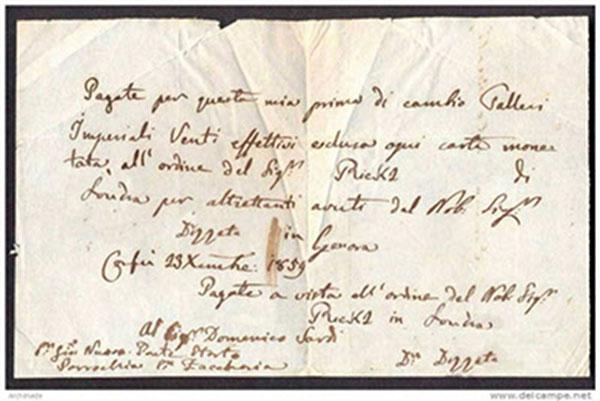 Pagate per questa mia prima di cambio Talleri
Imperiali Venti effettivi esclusa ogni carta mone-
tata, all' ordine del Sigr. di
Londra per altrettanti avuti dal Nob. Sigr.
in Genova
Corfù 23 Xembre: 1859
Pagate a vista all' ordine del Nob. Sigr.
in Londra
Al Sigr. Domenico Sardi
Ponte Storto
Parrochia
delcampe.net